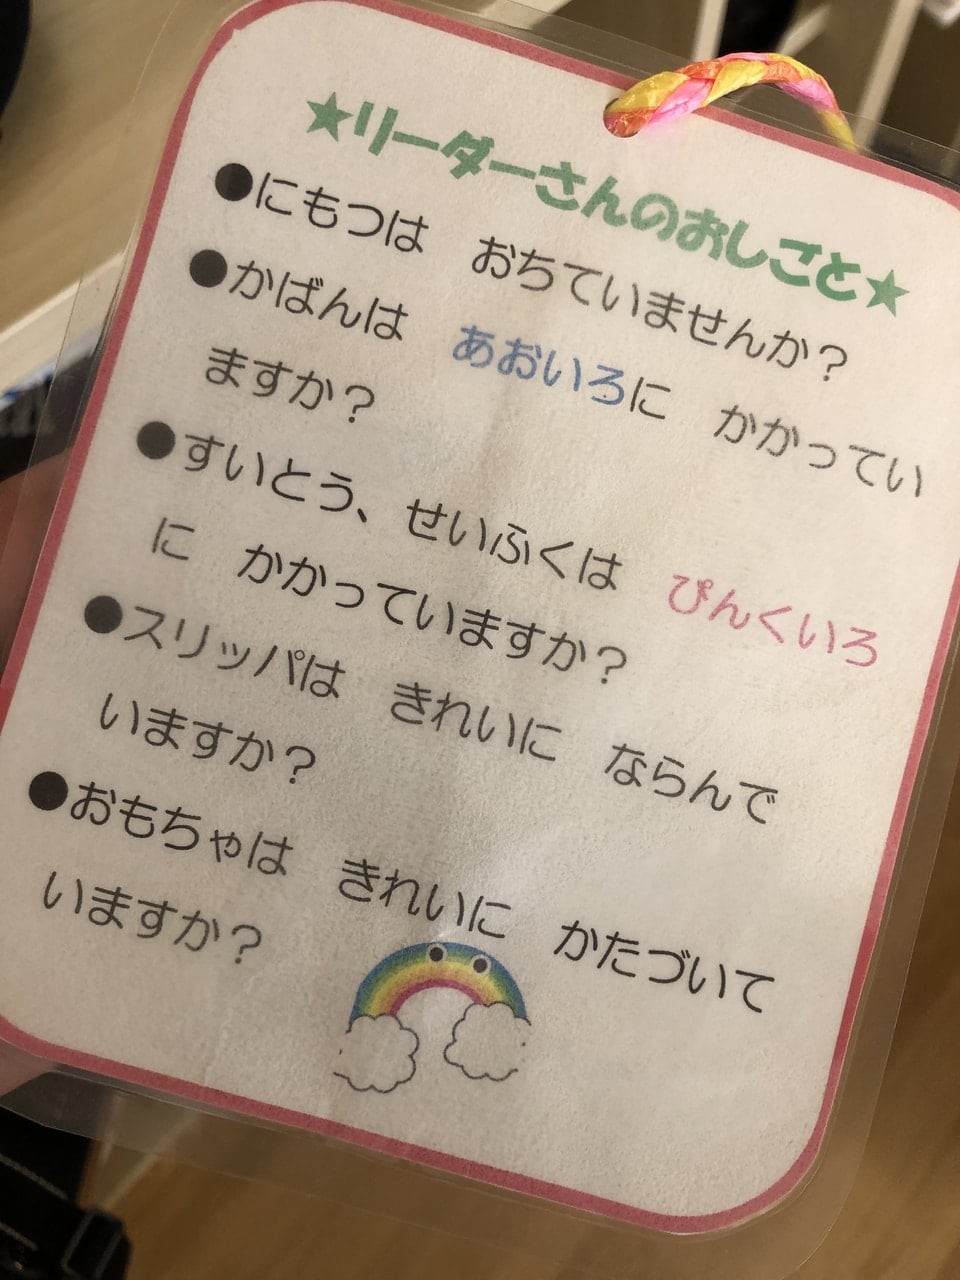 ★リーダーさんのおしごと★
●にもつは　おちていませんか？
●かばんは　あおいろに　かかってい
ますか？
●すいとう、せいふくは　ぴんくいろ
に　かかっていますか？
●スリッパは　きれいに　ならんで
いますか？
●おもちゃは　きれいに　かたづいて
いますか？